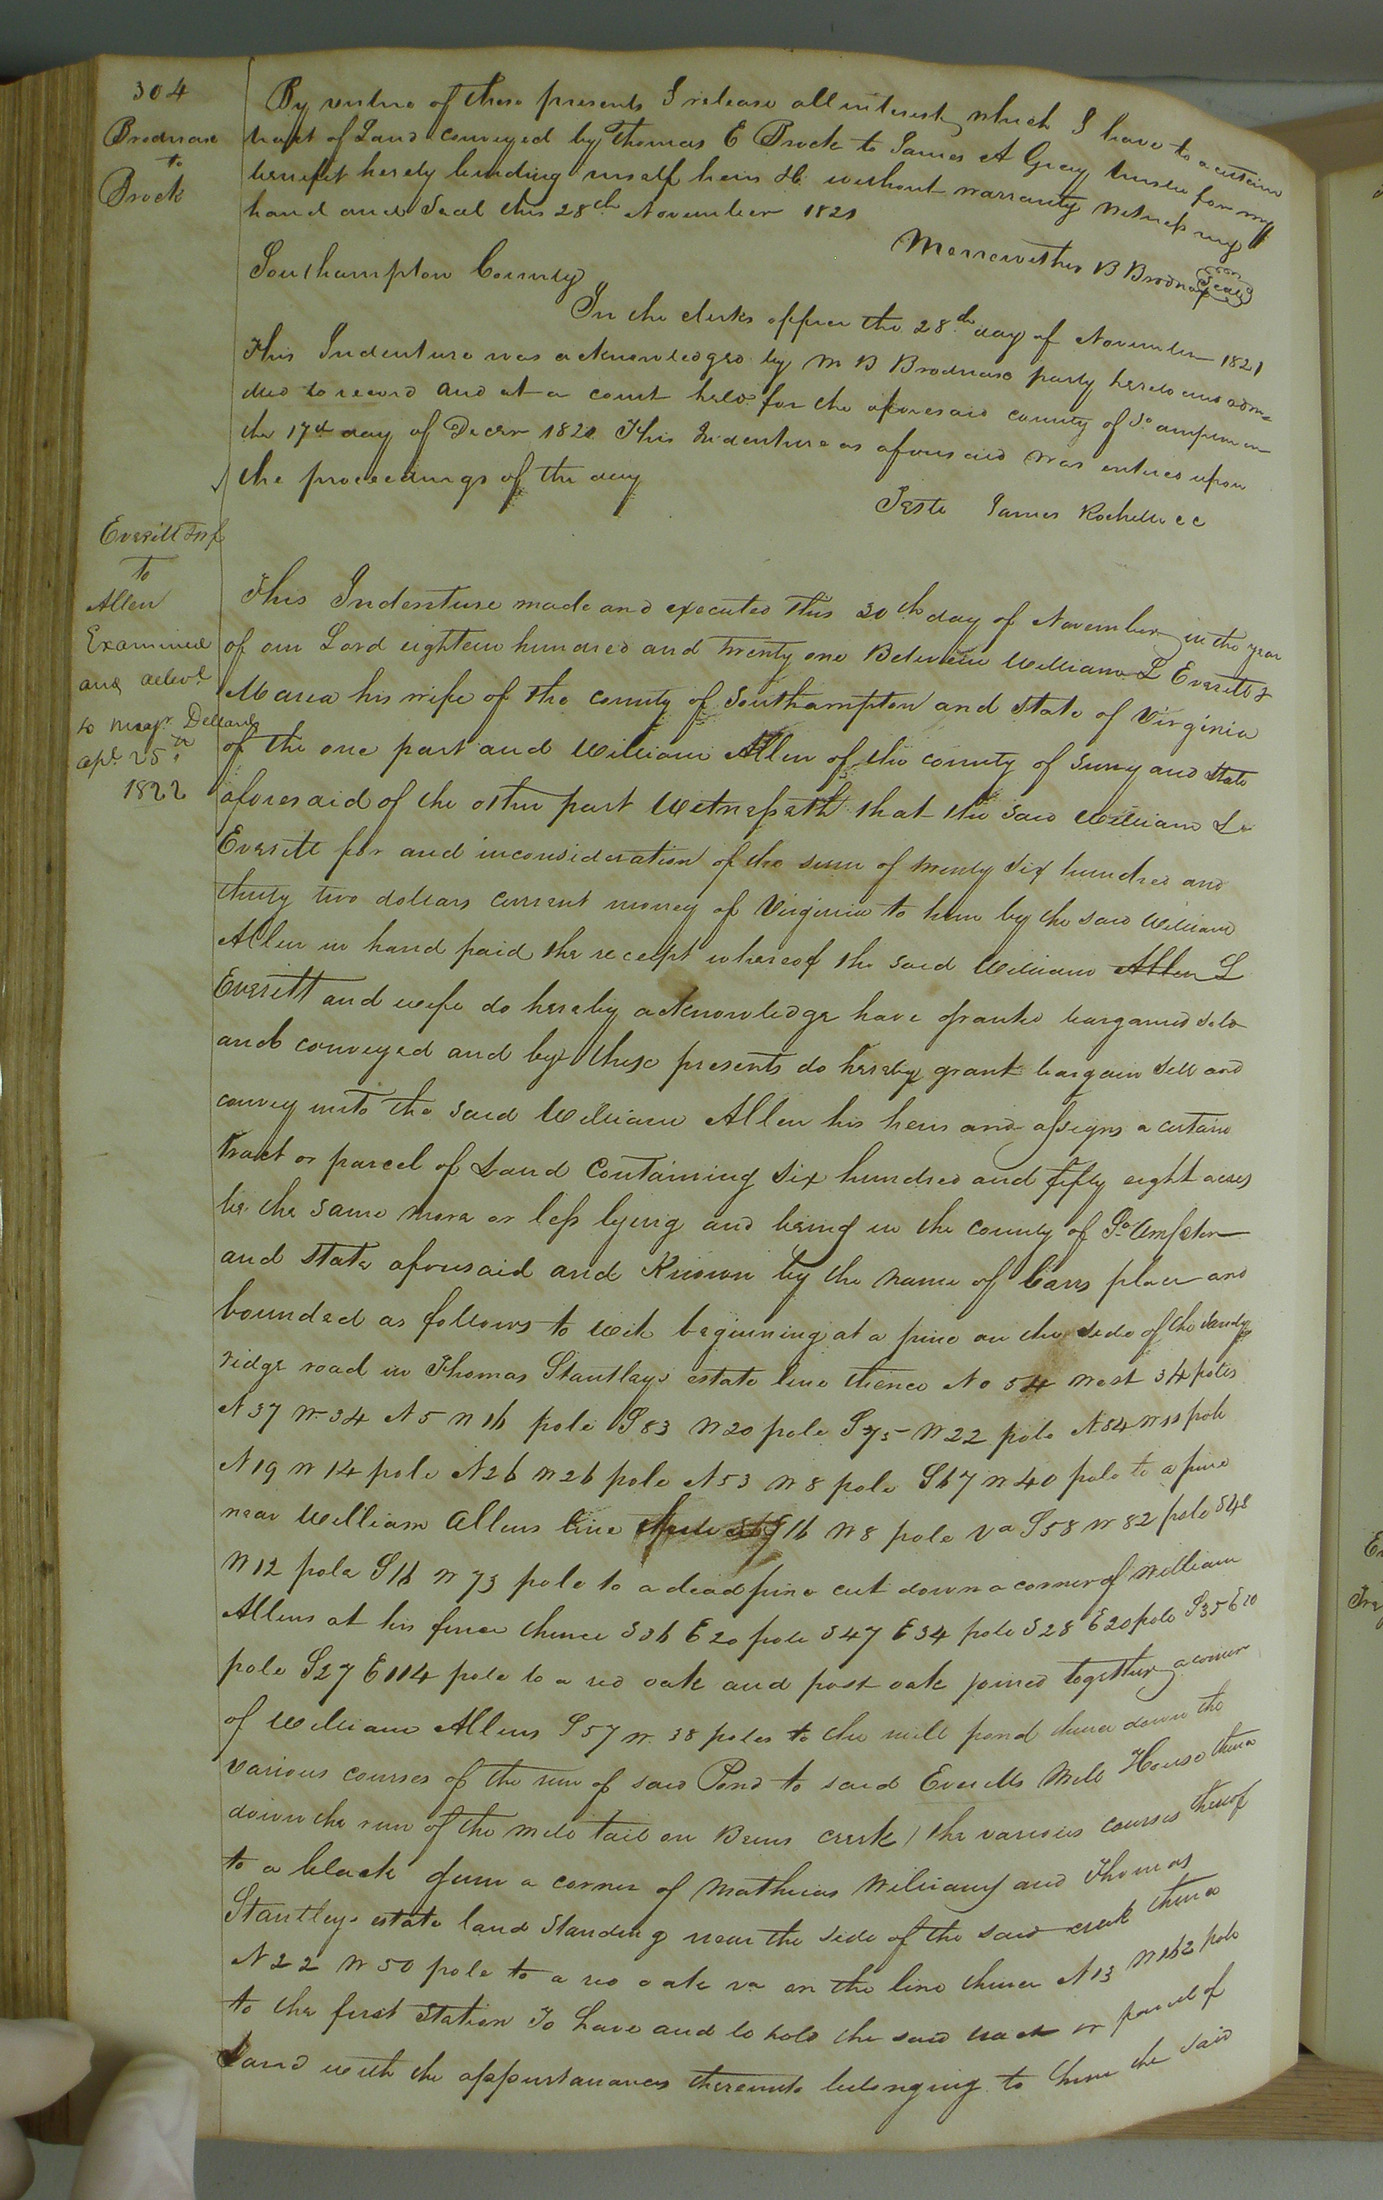 304
Brodnax
to
Brock
By virtue of these presents I release all interest which I have to a certain
tract of Land conveyed by Thomas E Brock to James A Gray trustee for my
benefit hereby binding myself heirs &c without warranty Witness my
hand and Seal this 28th November 1821
Merrewether B Brodnax Seal
Southampton County
In the clerks office the 28th day of November 1821
This Indenture was acknowledged by M B Brodnax party hereto and adm-
ited to record and at a court held for the aforesaid county of So ampton on
the 17th day of Decr 1821 This Indenture as aforesaid was entered upon
the proceedings of the day
Teste James Rochelle cc
Everitt &wf
to
Allen
Examined
and delivd
to Majr
apl 25th
1822
This Indenture made and executed this 30th day of November in the year
of our Lord eighteen hundred and twenty one Between William L Everitt &
Maria his wife of the county of Southampton and State of Virginia
of the one part and William Allen of the county of Surry and State
aforesaid of the other part Witnesseth that the said William L
Everitt for and inconsideration of the sum of twenty six hundred and
thirty two dollars current money of Virginia to him by the said William
Allen in hand paid the receipt whereof the said William Allen L
Everitt and wife do hereby acknowledge have granted bargained sold
and conveyed and by these presents do hereby grant bargain sell and
convey unto the said William Allen his heirs and assigns a certain
tract or parcel of Land Containing six hundred and fifty eight acres
be the same more or less lying and being in the county of So ampton
and State aforesaid and Known by the name of Carrs place and
bounded as follows to wit beginning at a pine on the side of the
ridge road in Thomas Stantleys estate line thence No 54 west 34 poles
N 37 W 34 N 5 W 16 pole S 83 W 20 pole S 75 W 22 pole N 84 W pole
N 19 W 14 pole N 26 W 26 pole N 53 W 8 pole S 67 W 40 pole to a pine
near William Allens line S 16 W 8 pole Va S 58 W 82 pole S 48
W 12 pole S 16 W 73 pole to a dead pine cut down a corner of William
Allens at his fence thence S 36 E 20 pole S 47 E 34 pole S 28 E 20 pole S 35 E 10
pole S 27 E 114 pole to a red oak and post oak joined together a corner
of William Allens S 57 W 38 poles to the mill pond thence down the
various courses of the run of said Pond to said Everitts Mill House thence
down the run of the mill tail or creek) the various courses thereof
to a black gum a corner of Mathias Williams and Thomas
Stantleys estate land standing near the side of the said creek thence
N 22 W 50 pole to a red oak va on the line thence N 13 W 162 pole
to the first station To have and to hold the said tract or parcel of
Land with the appurtanances thereunto belonging to him the said